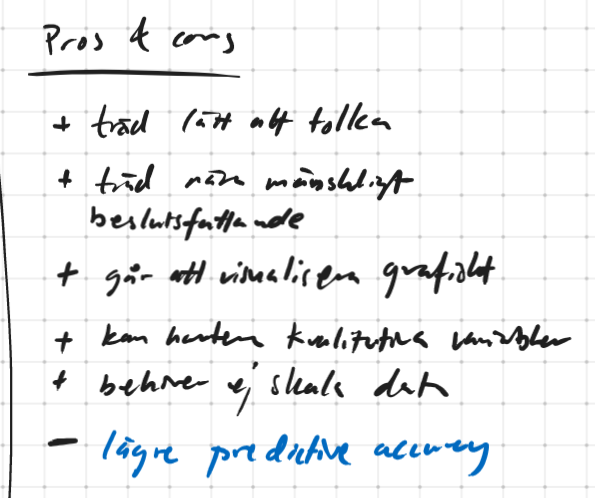 Pros & cons
+ träd lätt att tolka
+ träd nära mänskligt
beslutsfattande
+ går att visualisera grafiskt
+ kan hantera kvalitativa variabler
+ behöver ej skala data
- lägre predictive accuracy